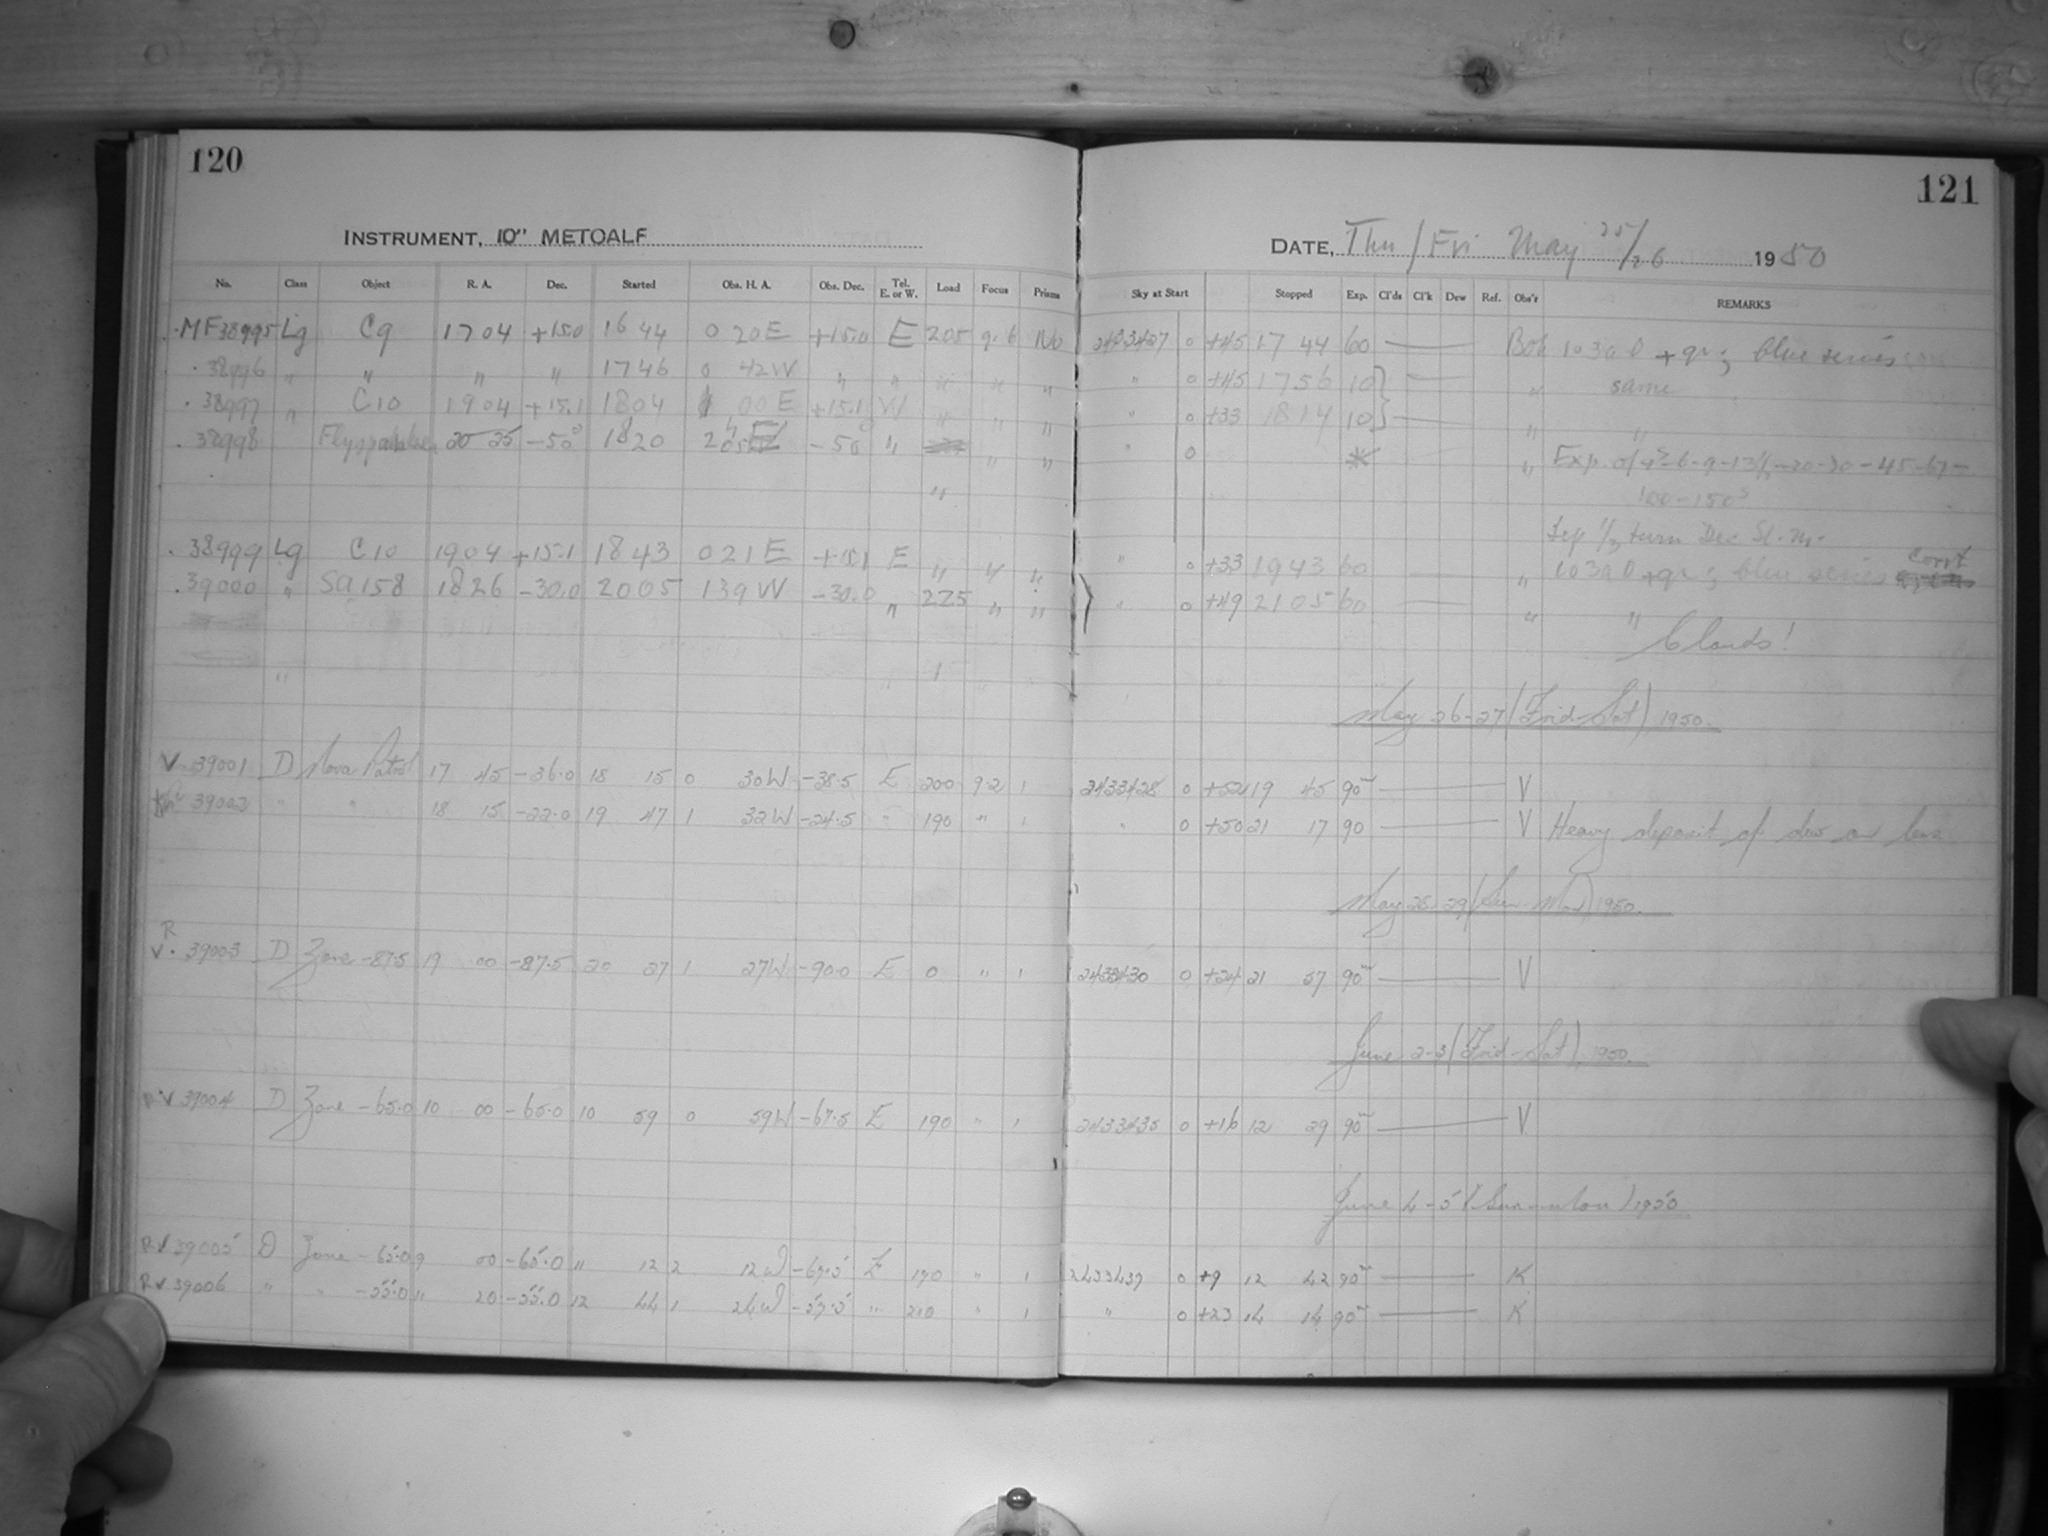 120
121
INSTRUMENT, 10" METCALF
DATE, Thu/Fri May 25/26 1950
No. Class Object R. A. Dec. Started Obs. H. A. Obs. Dec. Tel. E. or W. Load Focus Prisms Sky at Start Stopped Exp. Cl'ds Cl'k Dew Ref. Obs'r REMARKS
MF38995 Lg C9 17 04 +15.0 16 44 0 20E +15.0 E 205 9.6 2433427 0 +45 17 44 60 Bok 103aO + gr; blue series
38996 " " " " 17 46 0 42W " " " " " " 0 +45 17 56 10 " same
38997 " C10 19 04 +15.1 18 04 1 00E +15.1 W " " " " 0 +33 18 14 10 " "
38998 20 25 -50° 18 20 -50 " " " " 0 * " Exp. of
" 100-150s
1/2 turn Dec Sl. m.
38999 Lg C10 19 04 +15.1 18 43 0 21E +15.1 E " " " " 0 +33 19 43 60 " 103aO + gr; blue series Corrt
39000 " SA158 18 26 -30.0 20 05 1 39W -30.0 " 225 " " " 0 +49 21 05 60 " "
Clouds!
May 26-27 (Frid-Sat) 1950.
V 39001 D Nova Patrol 17 45 -36.0 18 15 0 30W -38.5 E 200 9.2 1 2433428 0 +52 19 45 90m V
39002 " " 18 15 -22.0 19 47 1 32W -24.5 " 190 " 1 " 0 +50 21 17 90 V Heavy deposit of dew on lens
May 28-29 (Sun-Mon) 1950.
R
V 39003 D Zone -87.5 19 00 -87.5 20 27 1 27W -90.0 E 0 " 1 2433430 0 +24 21 57 90m V
June 2-3 (Frid-Sat) 1950.
RV 39004 D Zone -65.0 10 00 -65.0 10 59 0 59W -67.5 E 190 " 1 2433435 0 +16 12 29 90m V
June 4-5 (Sun-Mon) 1950
RV 39005 D Zone -65.0 9 00 -65.0 11 12 2 12W -67.5 E 190 " 1 2433437 0 +9 12 42 90m K
RV 39006 " " -55.0 11 20 -55.0 12 44 1 24W -57.5 " 210 " 1 " 0 +23 14 14 90m K